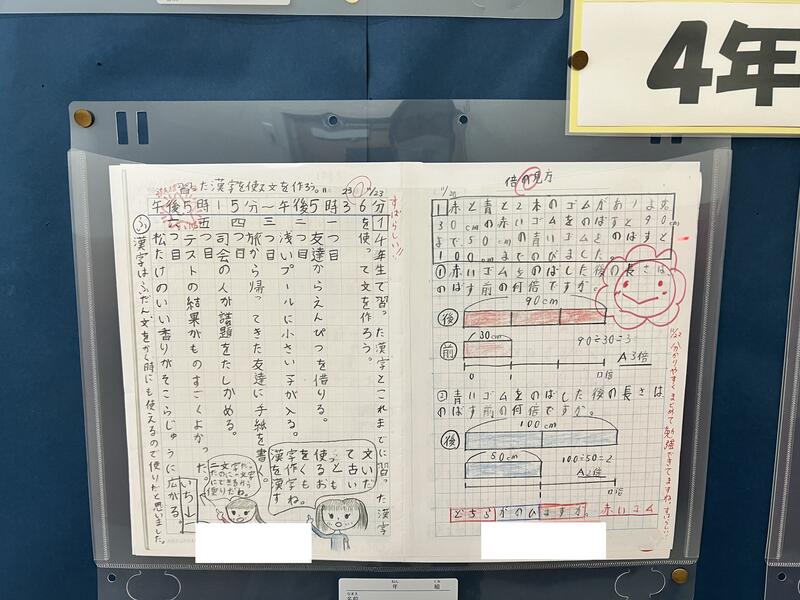 4年
倍の見方
11/20
1 赤と青と2本のゴムがあります。
30cmの赤いゴムをのばすと90cm
まで50cmの青いゴムをのばすと
100cmまでのびました。
①赤いゴムをのばした後の長さは
のばす前の何倍ですか。
90cm
後
30cm
前
90÷30=3
A 3倍
0 1 □倍
②青いゴムをのばした後の長さは
のばす前の何倍ですか。
100cm
後
50cm
100÷50=2
A 2倍
□倍
どちらがのびますか。 赤いゴム
分かりやすくまとめて勉強できてますね。すばらしい!!
習った漢字を使って文を作ろう。
11/23
すばらしい!!
午後5時15分〜午後5時36分
1 4年生で習った漢字とこれまでに習った漢字
を使って文を作ろう。
一つ目
友達からえんぴつを借りる。
二つ目
浅いプールに小さい子が入る。
三つ目
旅から帰ってきた友達に手紙を書く。
四つ目
司会の人が話題をたしかめる。
五つ目
テストの結果がものすごくよかった。
六つ目
松たけのいい香りがそこらじゅうに広がる。
ふ 漢字はふだん文をかく時にも使えるので便りだと思いました。